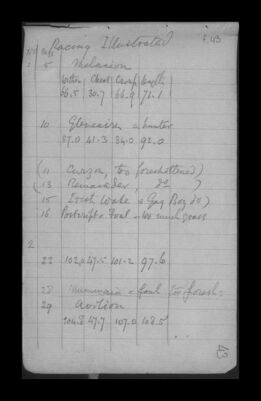 Racing Illustrated f. 43
No Cuts
1 5 Melanion
Withers | Chest | Croup | Length
66.5 30.7 66.9 72.1
10 a hunter
87.0 41.3 84.0 92.0
(11 Curzon, too foreshortened)
(13 do )
15 Irish Wake & Gay Boy do)
16 Postscript & Foal - too much grass
2
22 102.0 47.5 101.2 97.6
28 & foal too foresh-
29
104.8 47.7 107.0 108.5
43